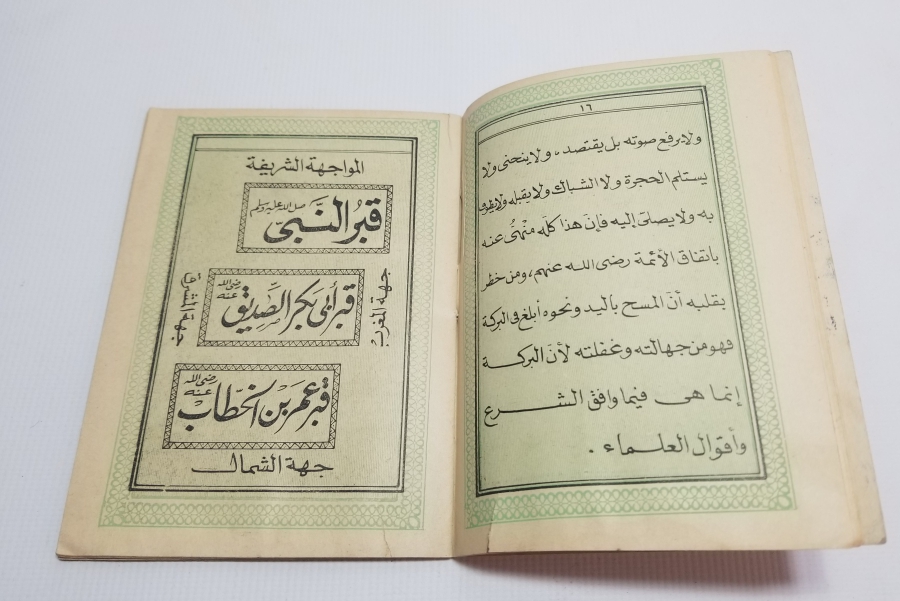 ١٦
ولا يرفع صوته بل يقتصد، ولا ينحنى ولا
يستلم الحجرة ولا الشباك ولا يقبله ولا يطوف
به ولا يصلى إليه فإن هذا كله منهىٌ عنه
باتفاق الأئمة رضى الله عنهم، ومن خطر
بقلبه أن المسح باليد ونحوه أبلغ فى البركة
فهو من جهالته وغفلته لأن البركة
إنما هى فيما وافق الشرع
وأقوال العلماء.
المواجهة الشريفة
قبرُ النَّبىّ صلى الله عليه وسلم
قبر أبى بكر الصّديق رضى الله عنه
جهة المغرب
جهة الشرق
قبر عمر بن الخطّاب رضى الله عنه
جهة الشمال